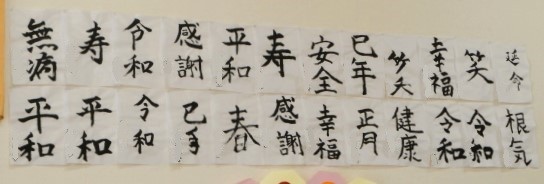 無病
寿
令和
感謝
平和
寿
安全
巳年
幸福
笑
延命
平和
平和
令和
巳年
春
感謝
幸福
正月
健康
令和
令和
根気